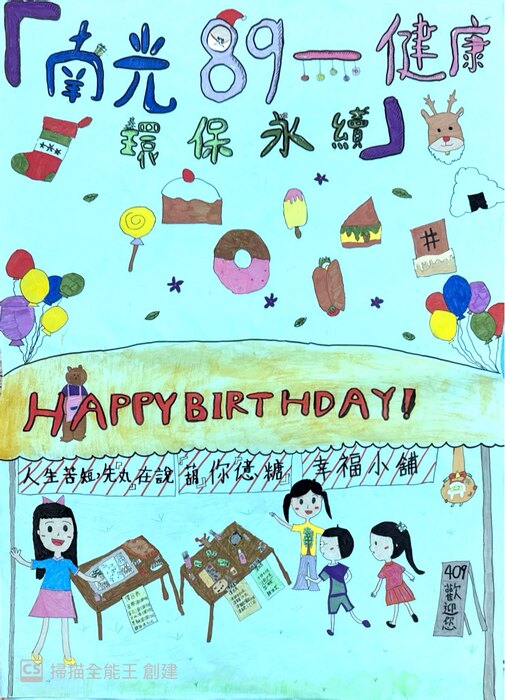 「南光89一健康
環保永續」
#
HAPPY BIRTHDAY!
人生苦短,先丸在說 『葫』你億糖 幸福小舖
409
歡
迎
您
CS 掃描全能王 創建